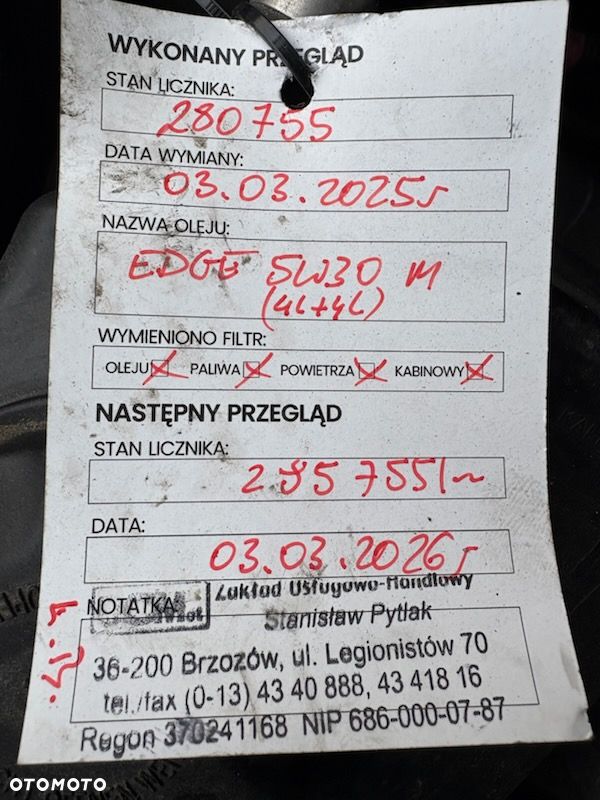 WYKONANY PRZEGLĄD
STAN LICZNIKA:
280755
DATA WYMIANY:
03.03.2025r
NAZWA OLEJU:
EDGE 5W30 M
(4L+4L)
WYMIENIONO FILTR:
OLEJU PALIWA POWIETRZA KABINOWY
NASTĘPNY PRZEGLĄD
STAN LICZNIKA:
295755
DATA:
03.03.2026r
NOTATKA:
Zakład Usługowo-Handlowy
Stanisław Pytlak
36-200 Brzozów, ul. Legionistów 70
tel./fax (0-13) 43 40 888, 43 418 16
Regon 370241168 NIP 686-000-07-87
OTOMOTO